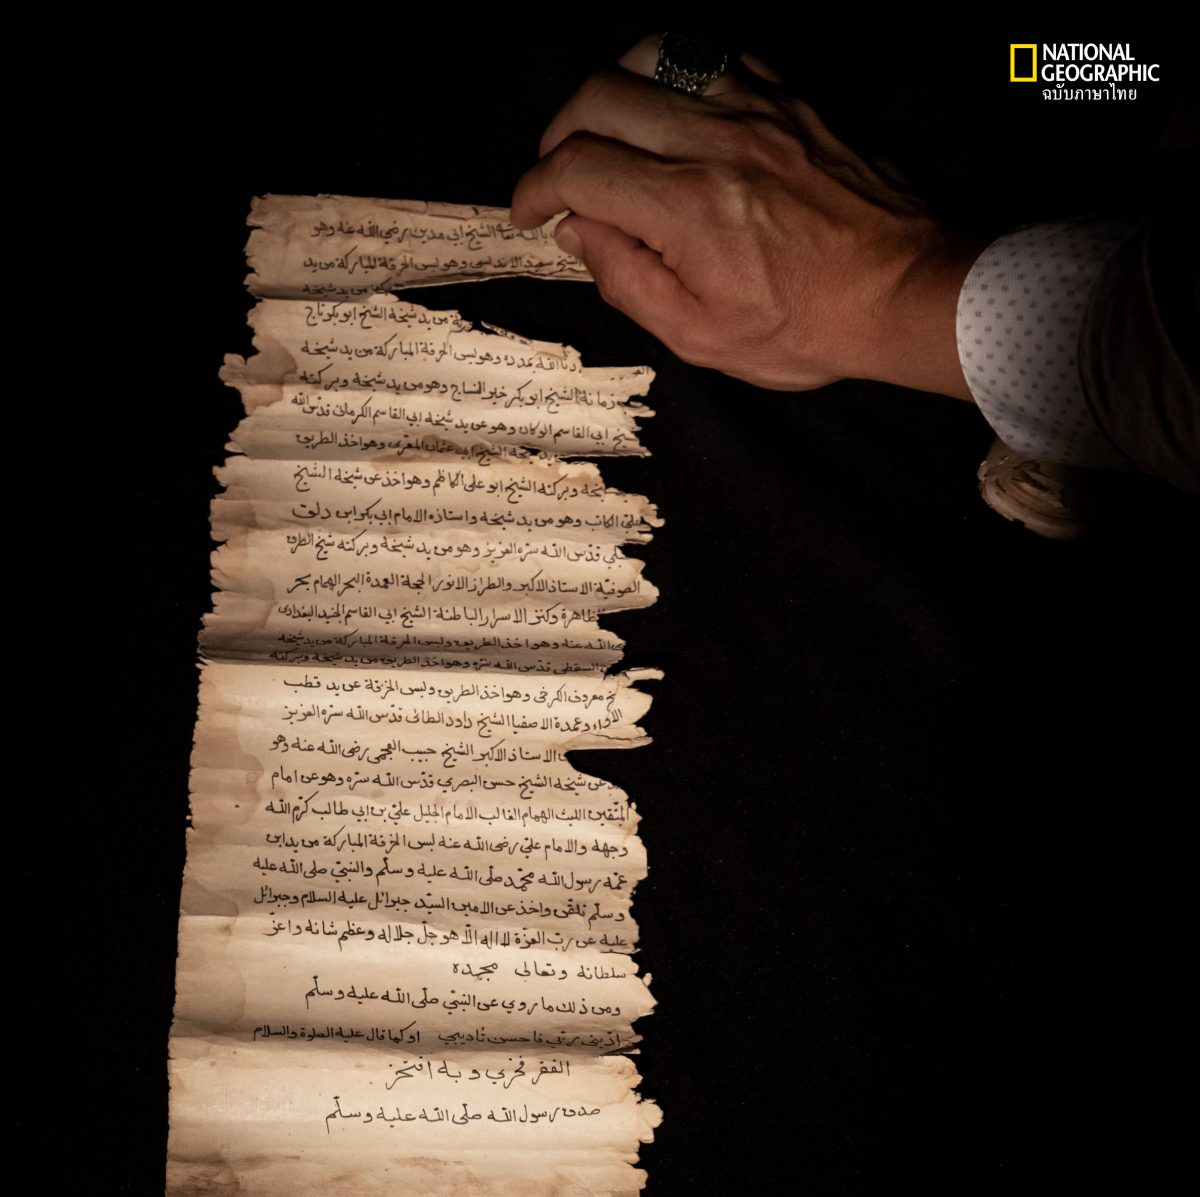 NATIONAL
GEOGRAPHIC
ฉบับภาษาไทย
بالله تعالى الشيخ ابي مدين رضي الله عنه وهو
الشيخ سعيد الاندلسي وهو لبس الخرقة المباركة من يد
من يد شيخه
من يد شيخه الشيخ ابو بكر تاج
الله بمدده وهو لبس الخرقة المباركة من يد شيخه
زمانه الشيخ ابو بكر خير النساج وهو من يد شيخه وبركته
شيخ ابي القاسم وهو عن يد شيخه ابي القاسم الكرماني قدّس الله
يد شيخه الشيخ ابي عثمان المغربي وهو اخذ الطريق
شيخه وبركته الشيخ ابو علي الكاظم وهو اخذ عن شيخه الشيخ
علي الكاتب وهو من يد شيخه واستاذه الامام ابي بكر ابن دلف
قدّس الله سرّه العزيز وهو من يد شيخه وبركته شيخ الطرق
الصوفيّة الاستاذ الاكبر والطراز الانور الحجلة العمدة البحر الهمام بحر
الظاهرة وكنز الاسرار الباطنة الشيخ ابي القاسم الجنيد البغدادي
الله عنه وهو اخذ الطريق ولبس الخرقة المباركة من يد شيخه
السقطي قدّس الله سرّه وهو اخذ الطريق من يد شيخه وبركته
معروف الكرخي وهو اخذ الطريق ولبس الخرقة عن يد قطب
وعمدة الاصفيا الشيخ داود الطائي قدّس الله سرّه العزيز
الاستاذ الاكبر الشيخ حبيب العجمي رضي الله عنه وهو
عن شيخه الشيخ حسن البصري قدّس الله سرّه وهو عن امام
المتّقين الليث الهمام الغالب الامام الجليل عليّ بن ابي طالب كرّم الله
وجهه والامام عليّ رضي الله عنه لبس الخرقة المباركة من يد ابن
عمّه رسول الله محمّد صلّى الله عليه وسلّم والنبيّ صلى الله عليه
وسلّم تلقّى واخذ عن الامين السيّد جبرائل عليه السلام وجبرائل
عليه عن ربّ العزّة لا اله الّا هو جلّ جلاله وعظم شانه واعزّ
سلطانه وتعالى مجده
ومن ذلك ما روي عن النبيّ صلّى الله عليه وسلّم
ادّبني ربّي فاحسن تاديبي او كما قال عليه الصلوة والسلام
الفقر فخري وبه افتخر
صدق رسول الله صلّى الله عليه وسلّم